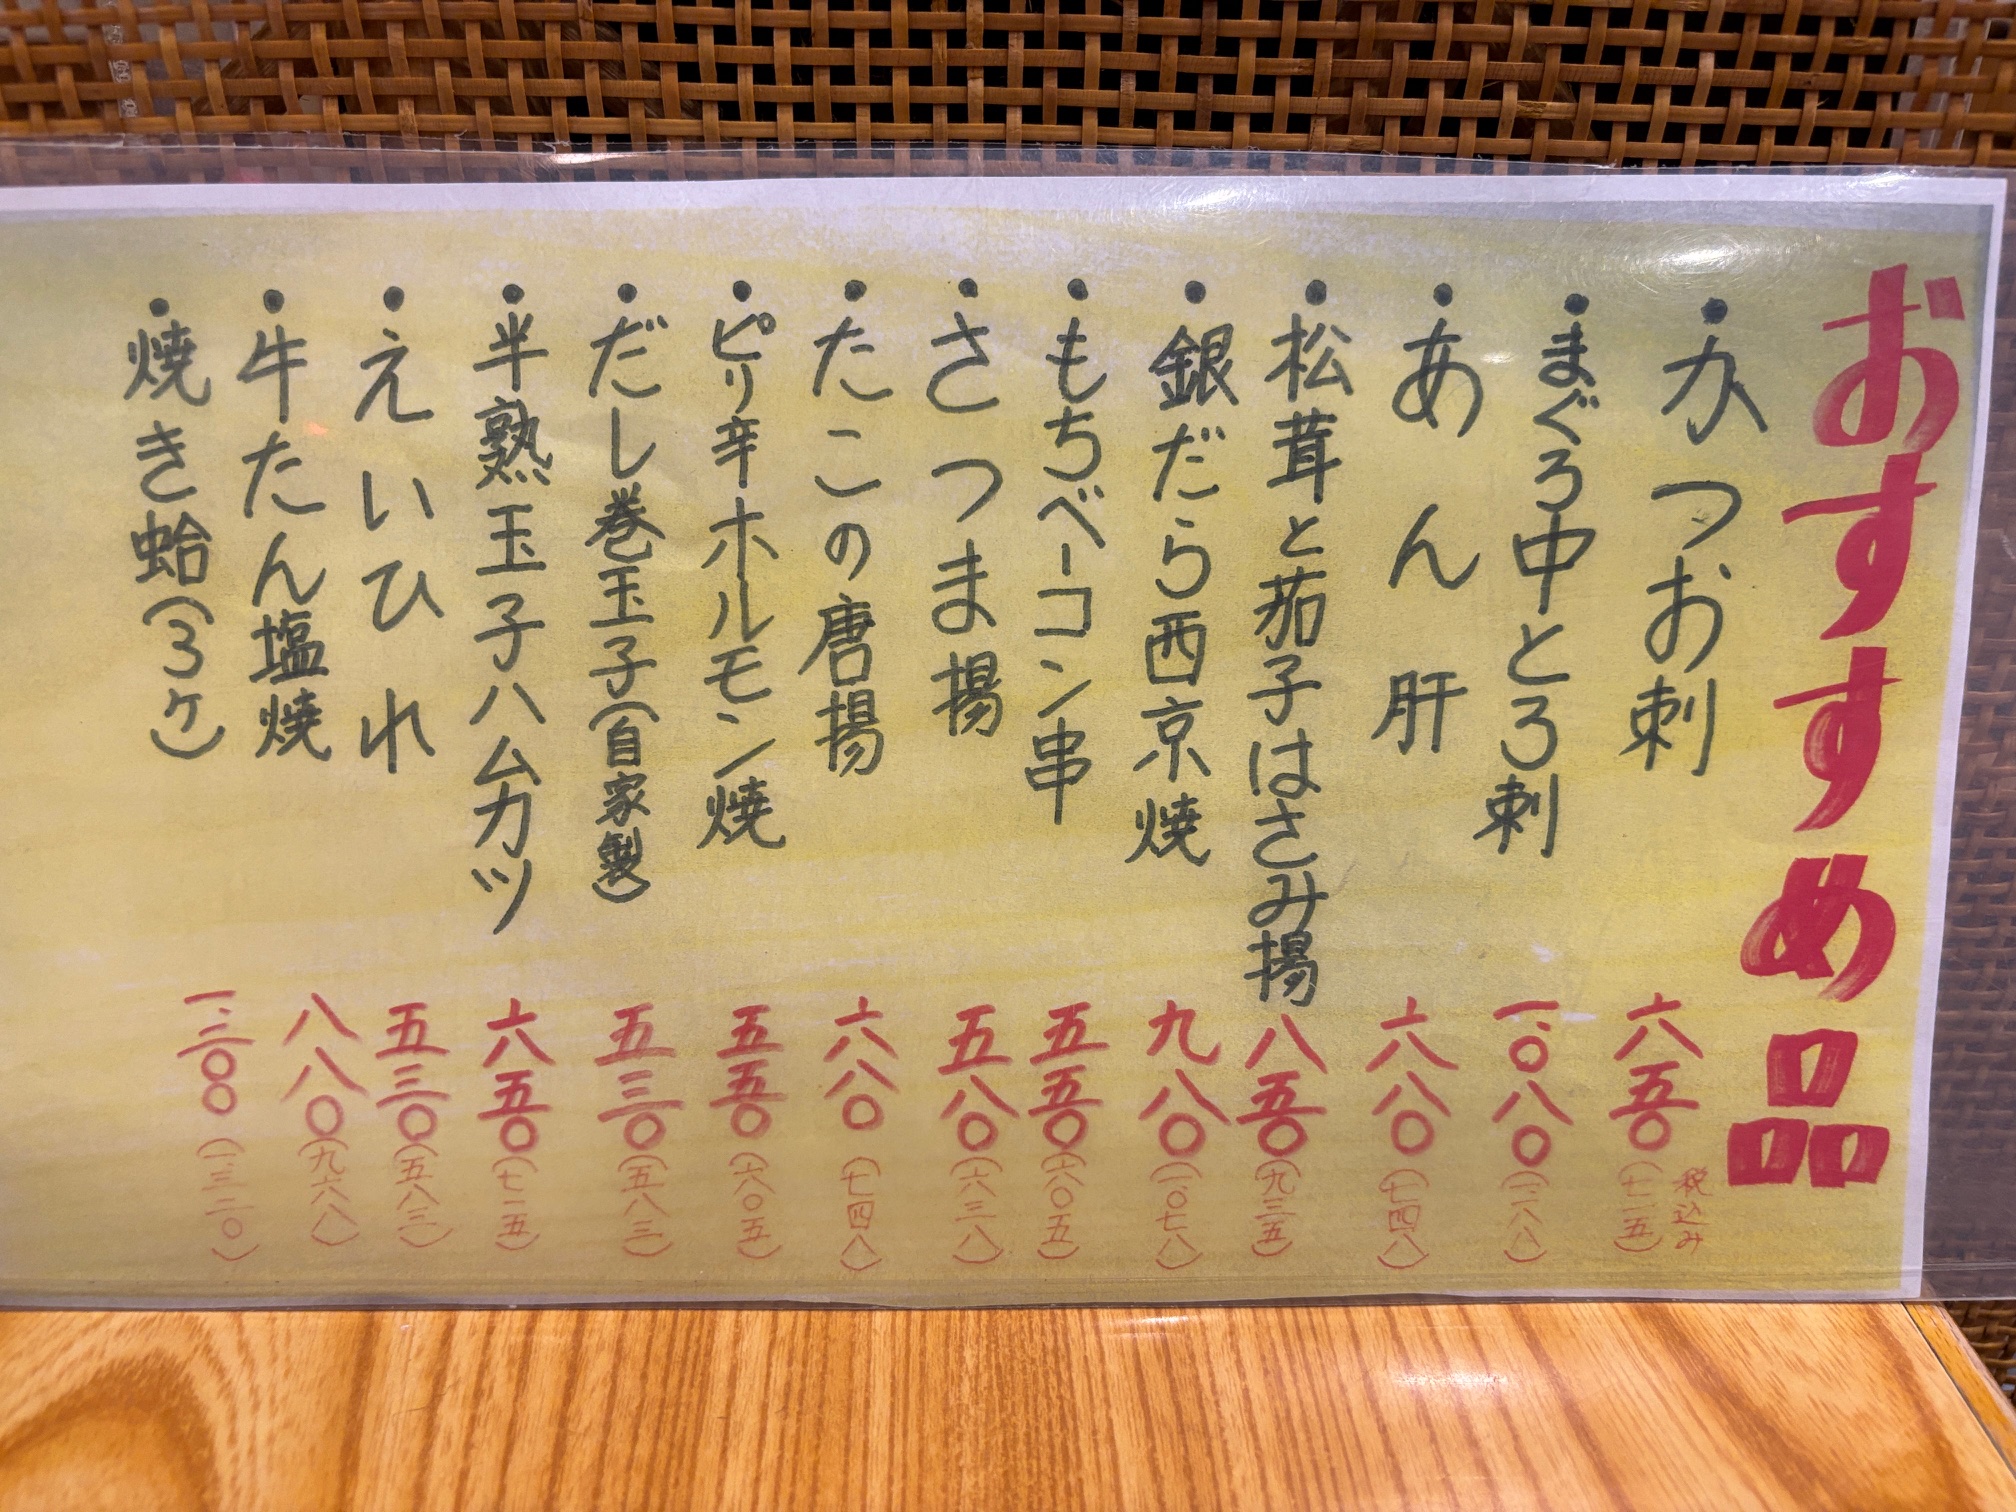 おすすめ品
税込み
・かつお刺 六五〇(七一五)
・まぐろ中とろ刺 一、〇八〇(一一八八)
・あん肝 六八〇(七四八)
・松茸と茄子はさみ揚 八五〇(九三五)
・銀だら西京焼 九八〇(一〇七八)
・もちベーコン串 五五〇(六〇五)
・さつま揚 五八〇(六三八)
・たこの唐揚 六八〇(七四八)
・ピリ辛ホルモン焼 五五〇(六〇五)
・だし巻玉子(自家製) 五三〇(五八三)
・半熟玉子ハムカツ 六五〇(七一五)
・えいひれ 五三〇(五八三)
・牛たん塩焼 八八〇(九六八)
・焼き蛤(3ヶ) 一、二〇〇(一三二〇)